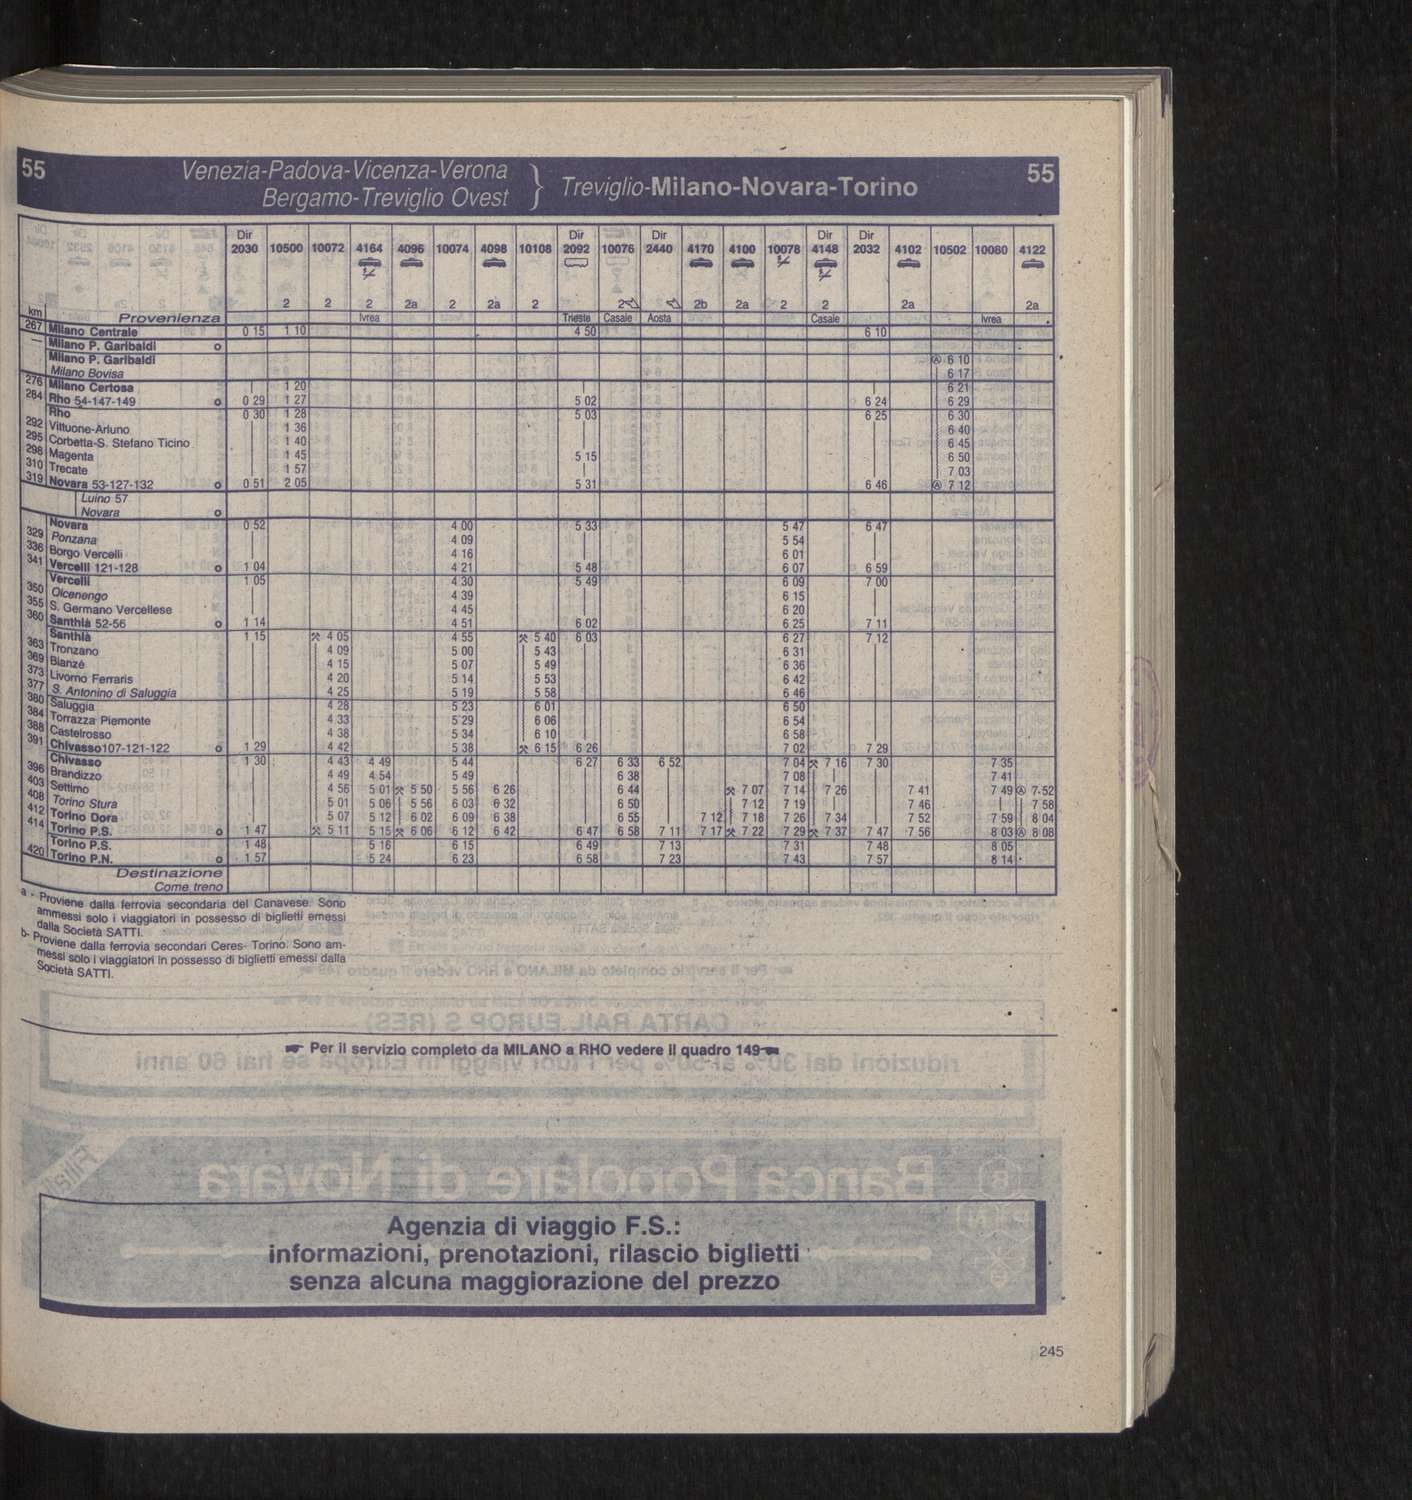 55 Venezia-Padova-Vicenza-Verona 55
Bergamo-Treviglio Ovest } Treviglio-Milano-Novara-Torino
Dir Dir Dir Dir Dir
2030 10500 10072 4164 4096 10074 4098 10108 2092 10076 2440 4170 4100 10078 4148 2032 4102 10502 10080 4122
2 2 2 2a 2 2a 2 2 2b 2a 2 2 2a 2a
km Provenienza Ivrea Trieste Casale Aosta Casale Ivrea
267 Milano Centrale 0 15 1 10 4 50 6 10
— Milano P. Garibaldi o
Milano P. Garibaldi Ⓐ 6 10
Milano Bovisa 6 17
276 Milano Certosa | 1 20 | | 6 21
284 Rho 54-147-149 o 0 29 1 27 5 02 6 24 6 29
Rho 0 30 1 28 5 03 6 25 6 30
292 Vittuone-Arluno | 1 36 | | 6 40
295 Corbetta-S. Stefano Ticino | 1 40 | | 6 45
298 Magenta | 1 45 5 15 | 6 50
310 Trecate | 1 57 | | 7 03
319 Novara 53-127-132 o 0 51 2 05 5 31 6 46 Ⓐ 7 12
Luino 57
Novara o
Novara 0 52 4 00 5 33 5 47 6 47
329 Ponzana | 4 09 | 5 54 |
336 Borgo Vercelli | 4 16 | 6 01 |
341 Vercelli 121-128 o 1 04 4 21 5 48 6 07 6 59
Vercelli 1 05 4 30 5 49 6 09 7 00
350 Olcenengo | 4 39 | 6 15 |
355 S. Germano Vercellese | 4 45 | 6 20 |
360 Santhià 52-56 o 1 14 4 51 6 02 6 25 7 11
Santhià 1 15 ⚒ 4 05 4 55 ⚒ 5 40 6 03 6 27 7 12
363 Tronzano | 4 09 5 00 5 43 | 6 31 |
369 Bianzè | 4 15 5 07 5 49 | 6 36 |
373 Livorno Ferraris | 4 20 5 14 5 53 | 6 42 |
377 S. Antonino di Saluggia | 4 25 5 19 5 58 | 6 46 |
380 Saluggia | 4 28 5 23 6 01 | 6 50 |
384 Torrazza Piemonte | 4 33 5 29 6 06 | 6 54 |
388 Castelrosso | 4 38 5 34 6 10 | 6 58 |
391 Chivasso 107-121-122 o 1 29 4 42 5 38 ⚒ 6 15 6 26 7 02 7 29
Chivasso 1 30 4 43 4 49 5 44 6 27 6 33 6 52 7 04 ⚒ 7 16 7 30 7 35
396 Brandizzo | 4 49 4 54 5 49 | 6 38 | 7 08 | | 7 41
403 Settimo | 4 56 5 01 ⚒ 5 50 5 56 6 26 | 6 44 | ⚒ 7 07 7 14 7 26 | 7 41 7 49 Ⓐ 7 52
408 Torino Stura | 5 01 5 06 5 56 6 03 6 32 | 6 50 | 7 12 7 19 | | 7 46 | 7 58
412 Torino Dora | 5 07 5 12 6 02 6 09 6 38 | 6 55 | 7 12 7 18 7 26 7 34 | 7 52 7 59 8 04
414 Torino P.S. o 1 47 ⚒ 5 11 5 15 ⚒ 6 06 6 12 6 42 6 47 6 58 7 11 7 17 ⚒ 7 22 7 29 ⚒ 7 37 7 47 7 56 8 03 Ⓐ 8 08
Torino P.S. 1 48 5 16 6 15 6 49 7 13 7 31 7 48 8 05
420 Torino P.N. o 1 57 5 24 6 23 6 58 7 23 7 43 7 57 8 14
Destinazione
Come treno
a - Proviene dalla ferrovia secondaria del Canavese. Sono
ammessi solo i viaggiatori in possesso di biglietti emessi
dalla Società SATTI.
b- Proviene dalla ferrovia secondari Ceres- Torino. Sono am-
messi solo i viaggiatori in possesso di biglietti emessi dalla
Società SATTI.
☛ Per il servizio completo da MILANO a RHO vedere il quadro 149 ☚
Agenzia di viaggio F.S.:
informazioni, prenotazioni, rilascio biglietti
senza alcuna maggiorazione del prezzo
245